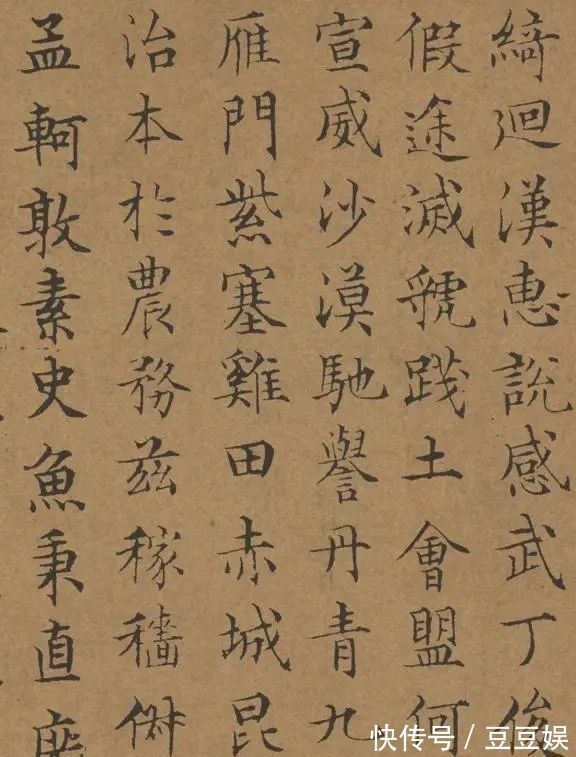 綺迴漢惠說感武丁俊
假途滅虢踐土會盟何
宣威沙漠馳譽丹青九
雁門紫塞雞田赤城昆
治本於農務茲稼穡俶
孟軻敦素史魚秉直庶
快传号 / 豆豆娱